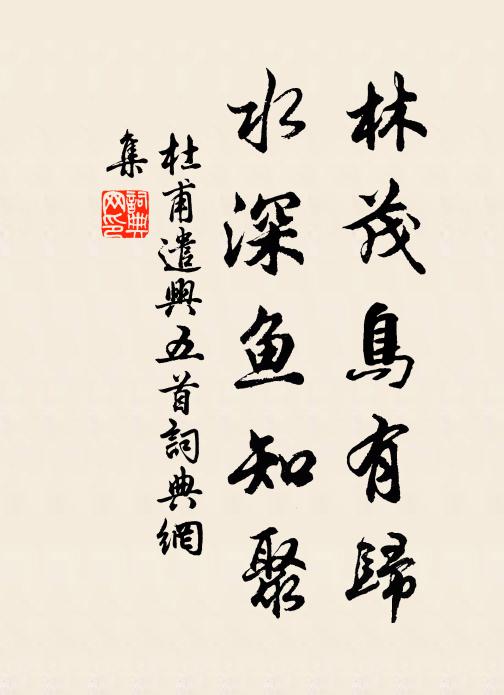 林茂鳥有歸
水深鱼知聚
杜甫遣興五首詞典網
集
詞典網印